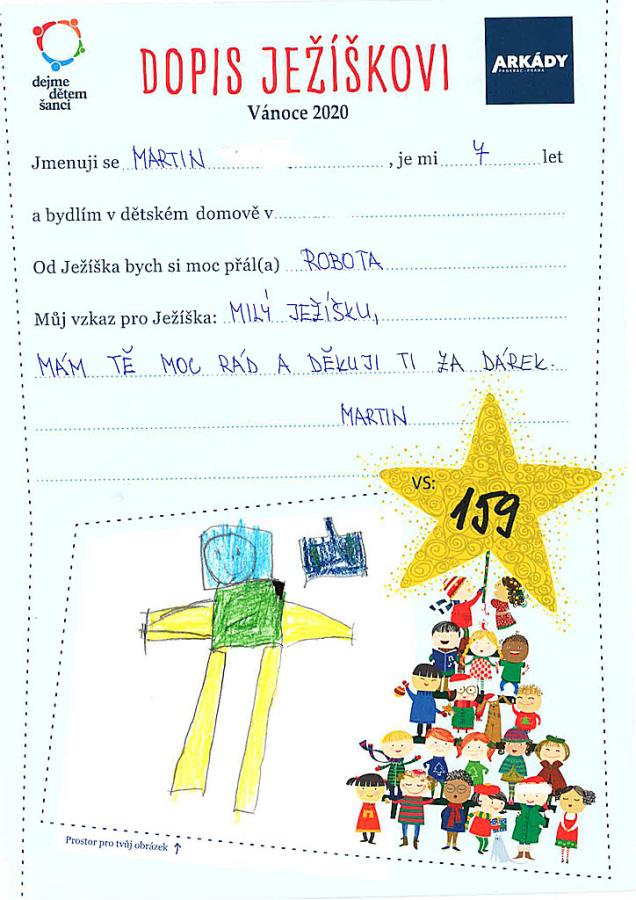 dejme
dětem
šanci
DOPIS JEŽÍŠKOVI
ARKÁDY
PANKRÁC - PRAHA
Vánoce 2020
Jmenuji se MARTIN , je mi 7 let
a bydlím v dětském domově v
Od Ježíška bych si moc přál(a) ROBOTA
Můj vzkaz pro Ježíška: MILÝ JEŽÍŠKU,
MÁM TĚ MOC RÁD A DĚKUJI TI ZA DÁREK.
MARTIN
VS:
159
Prostor pro tvůj obrázek ↑